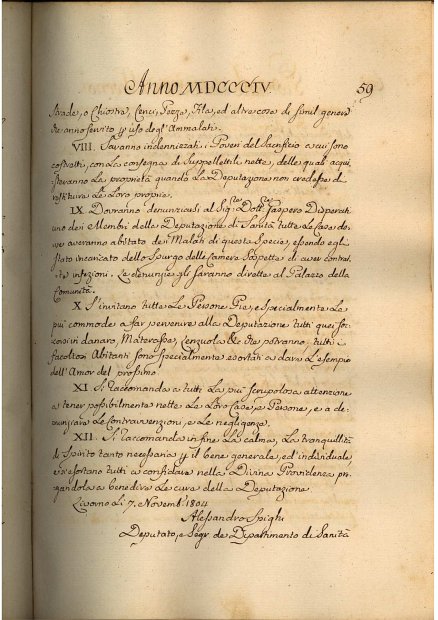 Anno MDCCCIV
59
Strade, o Chiostri, Cenci, Pezze, Fila, ed altre cose di simil genere
che anno servito p uso degl' Ammalati.
VIII. Saranno indennizzati i Poveri del Sacrificio a cui sono
costretti, con la consegna di Suppellettili nette, delle quali acqui
steranno la proprietà quando la Deputazione non credesse di
restituire le loro proprie.
IX. Dovranno denunziarsi al Sig.r Dott. Gaspero Disperati
uno dei Membri della Deputazione di Sanità tutte le Case do-
ve averanno abitato dei Malati di questa Specie, essendo egli
stato incaricato dello Spurgo delle Camere Sospette di aver contrat-
te infezioni. Le denunzie gli saranno dirette al Palazzo della
Comunità.
X. S'invitano tutte le Persone Pie, e Specialmente la
più commode a far pervenire alla Deputazione tutti quei soc-
corsi in danaro, Materasse, Lenzuola &c che potranno: tutti i
facoltosi Abitanti sono specialmente esortati a dare l'esempio
dell' Amor del prossimo.
XI. Si raccomanda a tutti la più scrupolosa attenzione
a tener possibilmente nette le loro Case, e Persone, e a de-
nunziare le Contravvenzioni, e le negligenze.
XII. Si raccomanda in fine la calma, la tranquillità
di Spirito tanto necessaria p il bene generale, ed individuale
e si esortano tutti a confidare nella Divina Providenza pre
gandola a benedire le cure della Deputazione
Livorno li 7. Novemb. 1804
Alessandro Spighi
Deputato, e Segr. de Dipartimento di Sanità